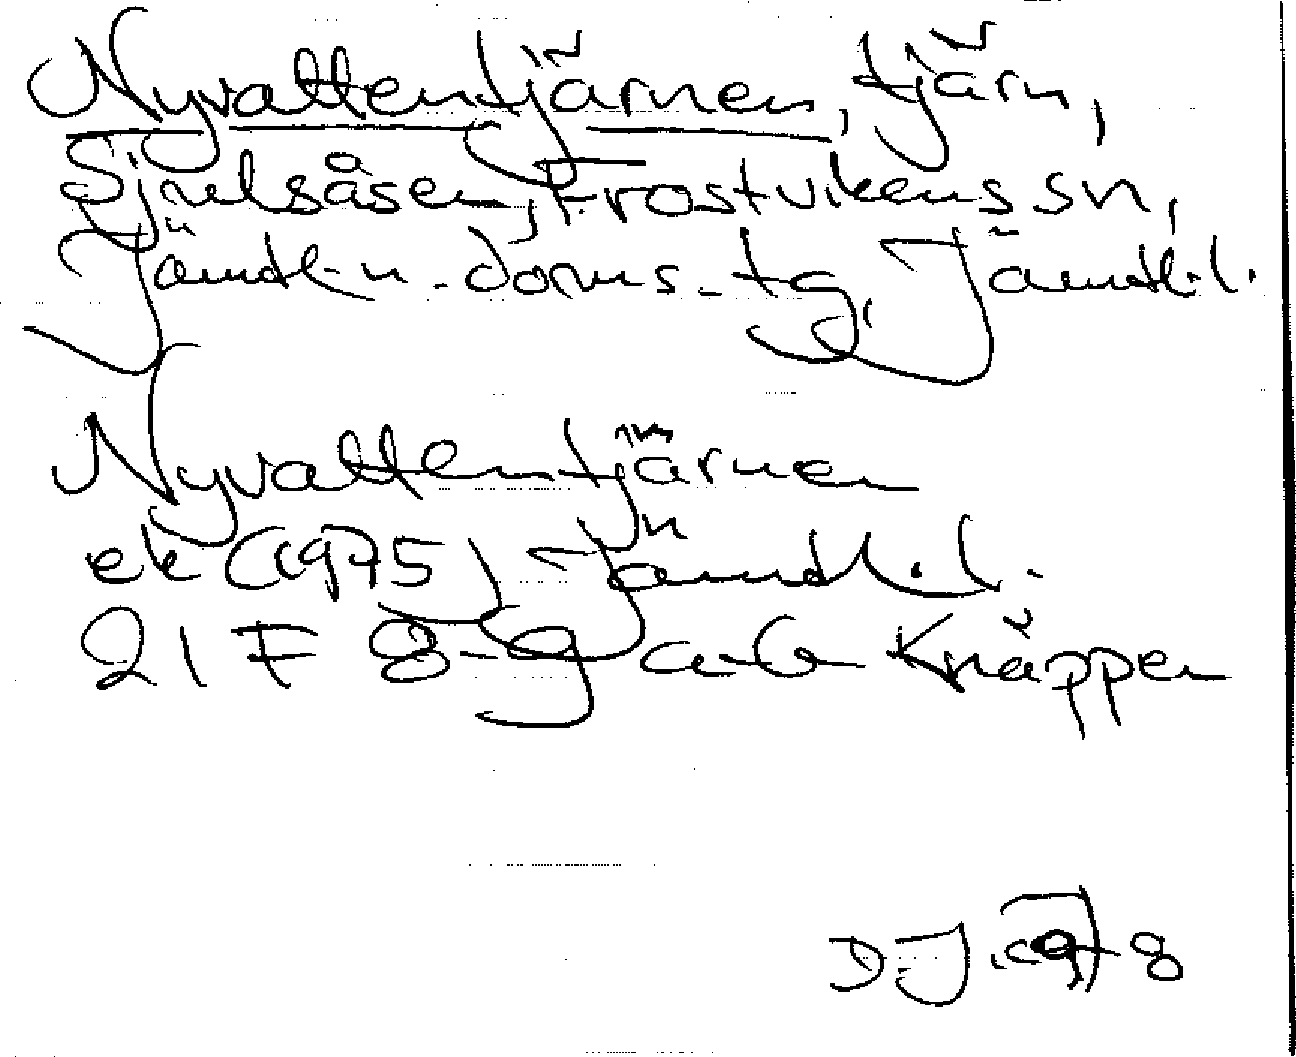 Nyvattentjärnen, tjärn,
Sjulsåsen, Frostvikens sn,
Jämtl-n. doms. tg, Jämtl. l.
Nyvattentjärnen
ek (1975) Jämtl. l.
21 F 8-9 a-b Knäppen
DJ. 1978